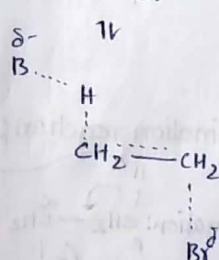 δ-
B
H
CH₂ CH₂
Brδ